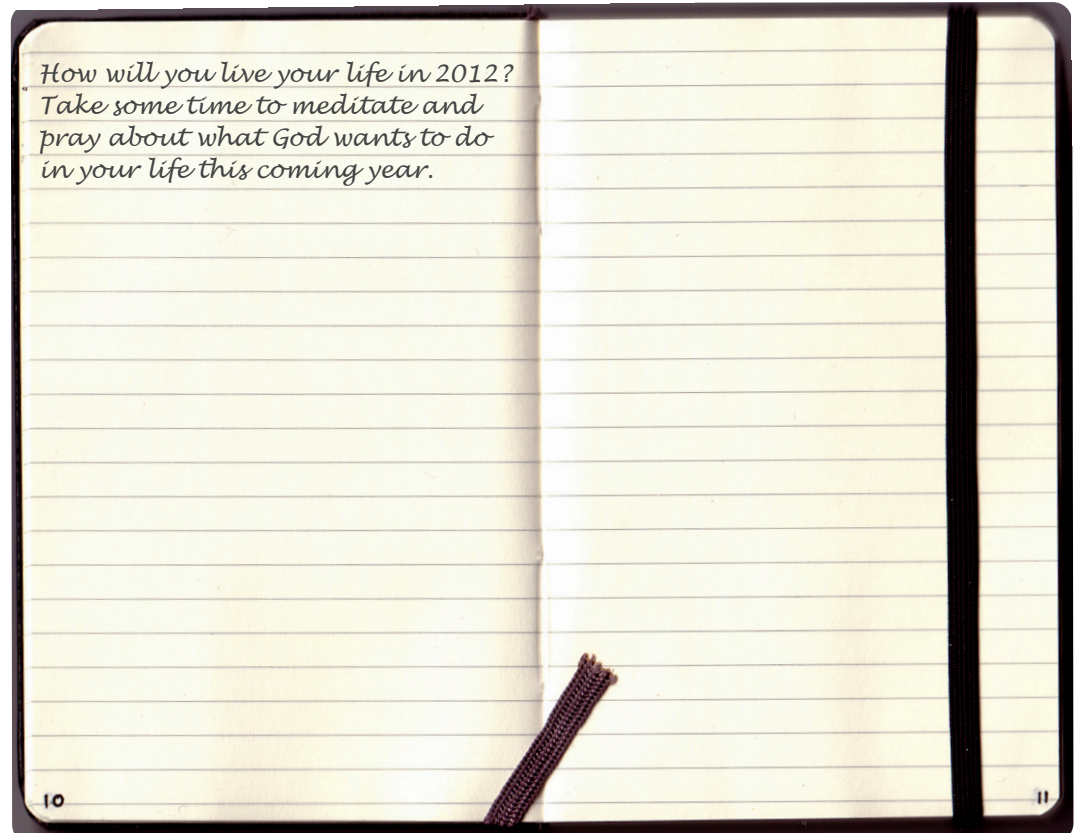 How will you live your life in 2012?
Take some time to meditate and
pray about what God wants to do
in your life this coming year.
10
11